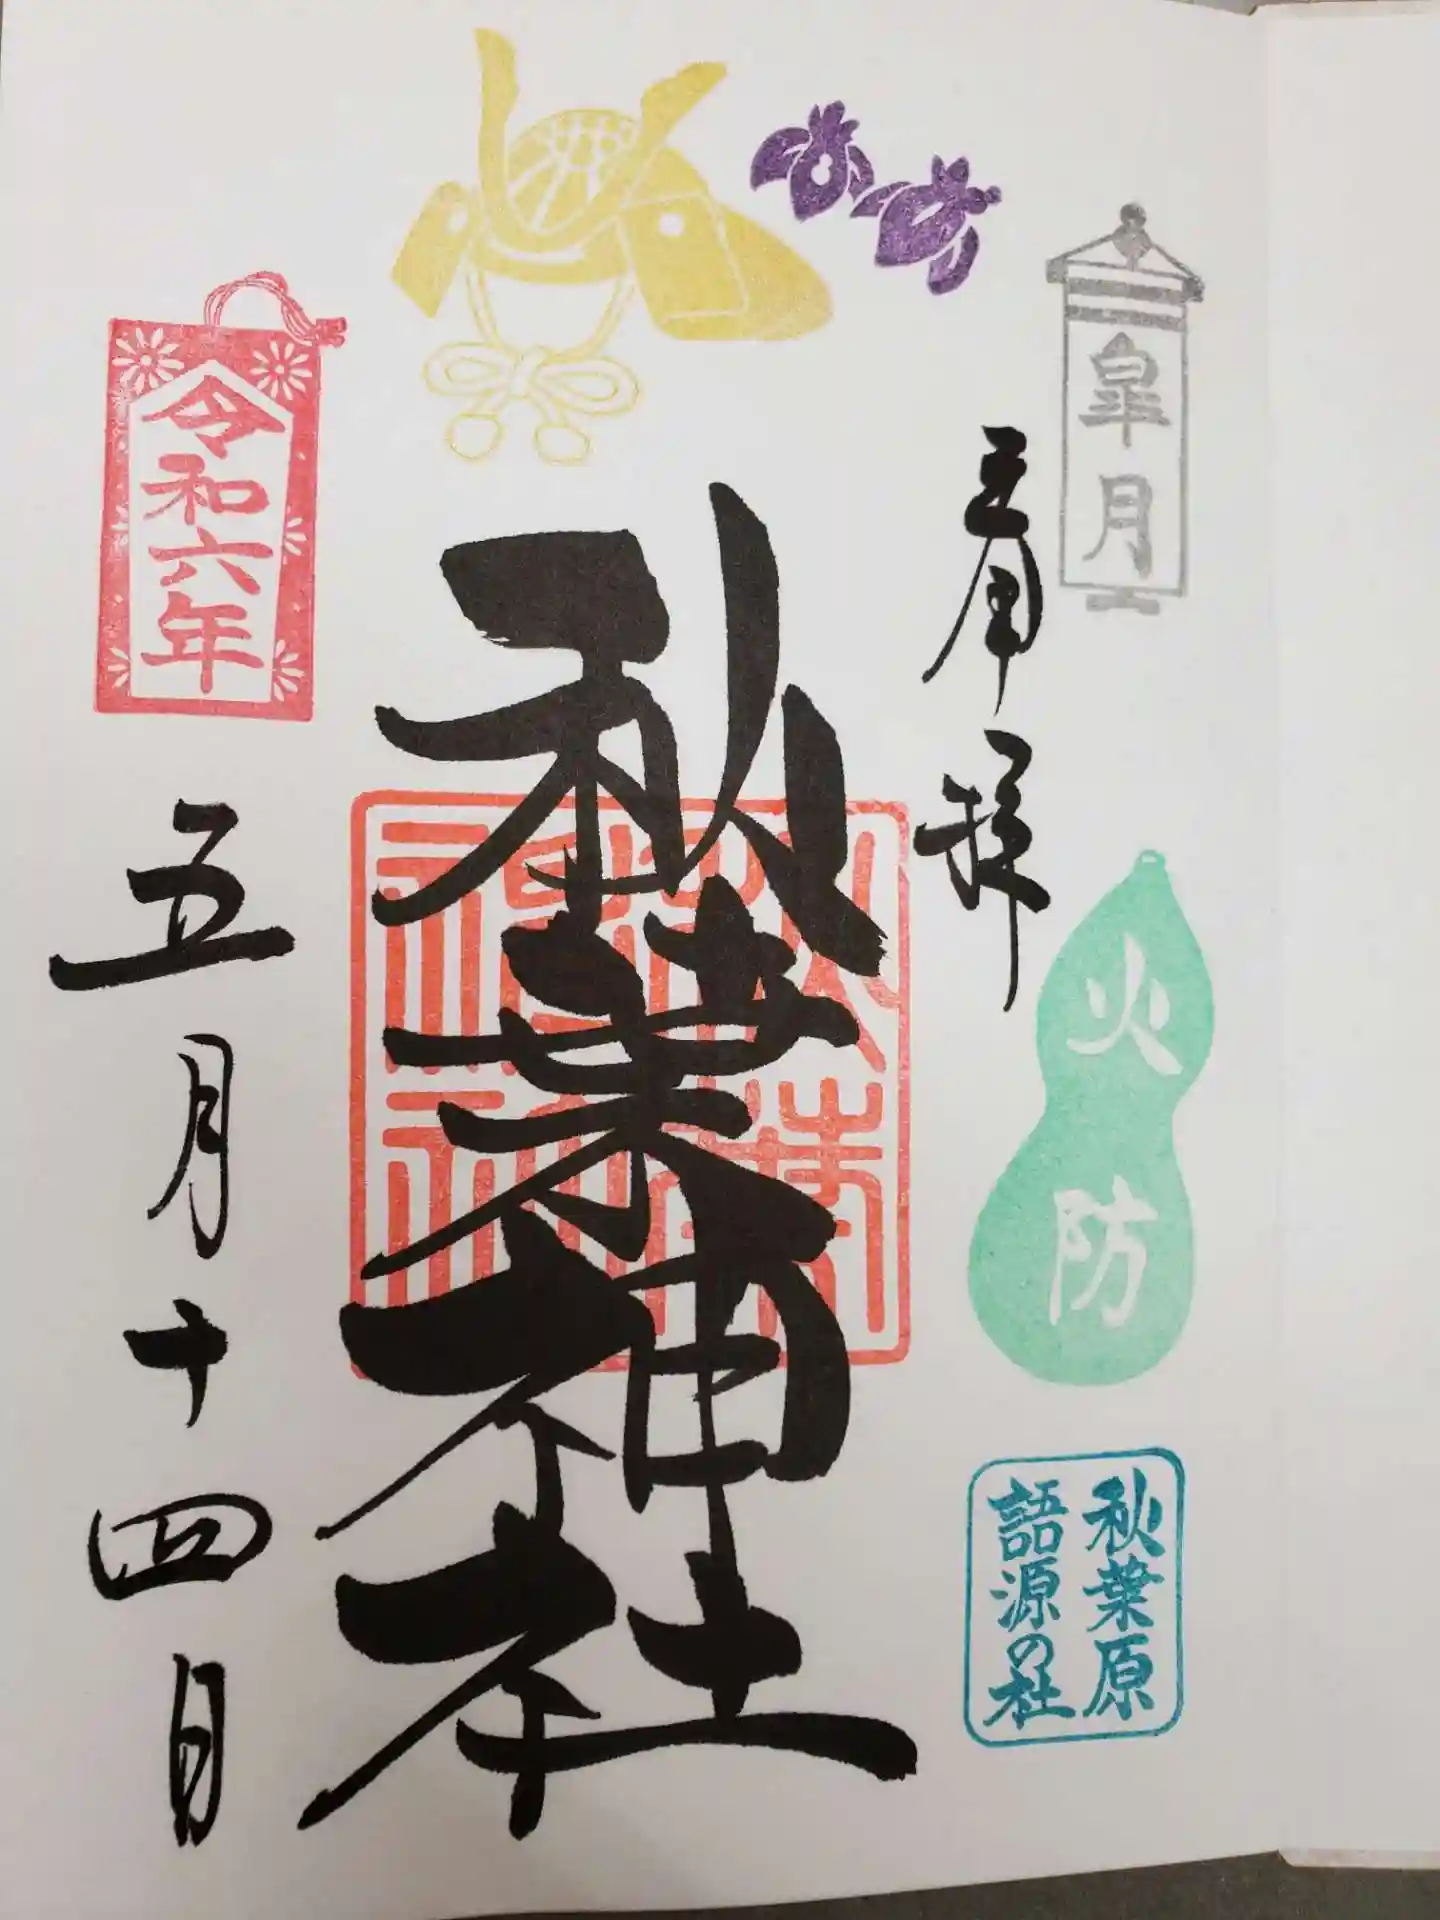 皐月
奉拝
火防
秋葉原
語源の社
秋葉神社
令和六年
五月十四日